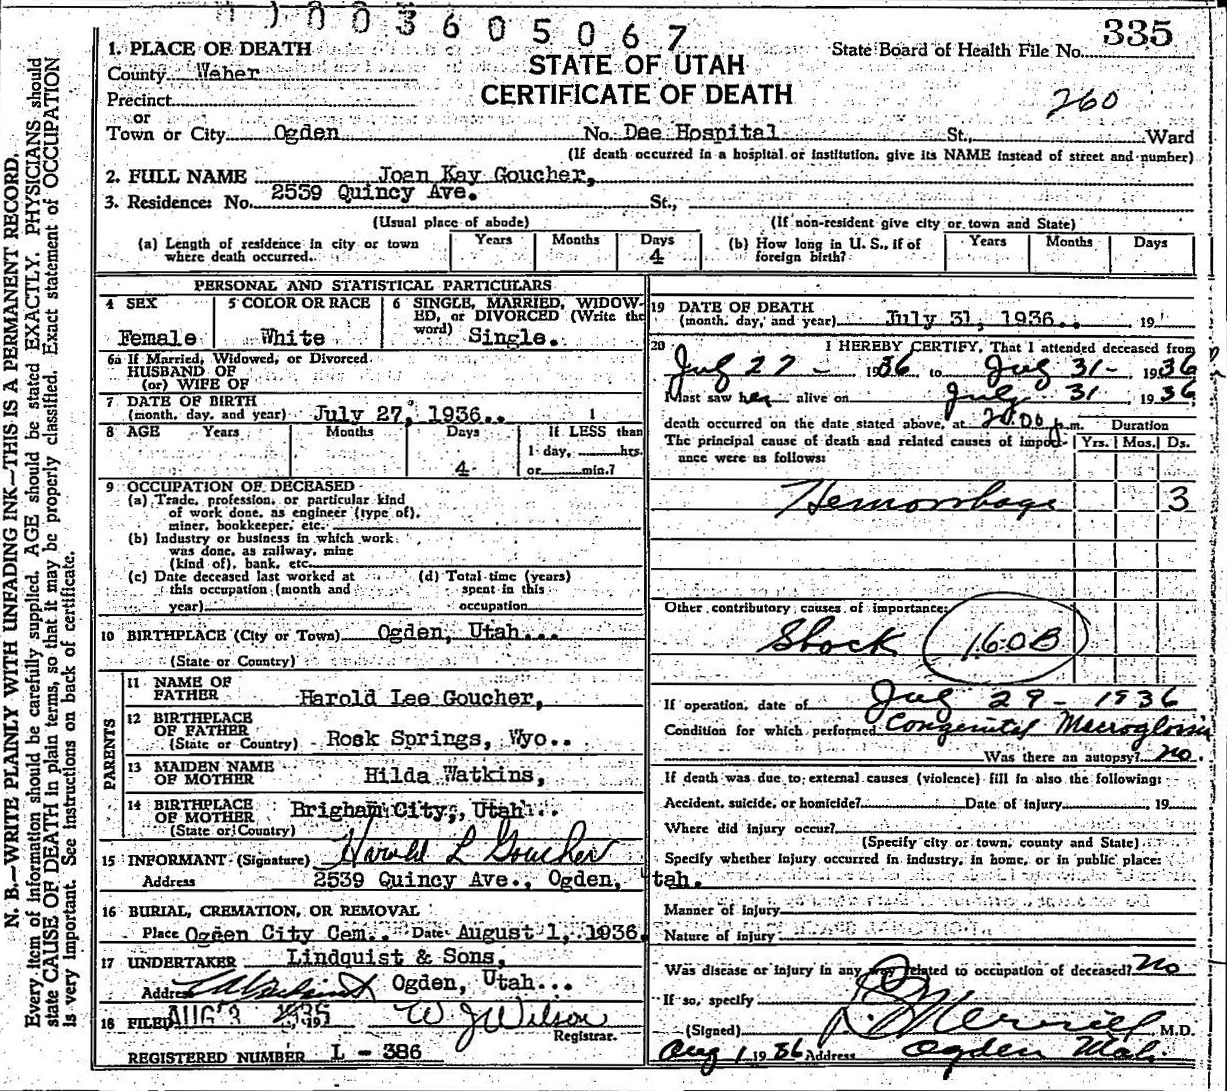 0003605067
335
State Board of Health File No.
STATE OF UTAH
CERTIFICATE OF DEATH
260
1. PLACE OF DEATH
County Weber
Precinct
or
Town or City Ogden No. Dee Hospital St., Ward
(If death occurred in a hospital or institution, give its NAME instead of street and number)
2. FULL NAME Joan Kay Goucher,
3. Residence: No. 2539 Quincy Ave. St.,
(Usual place of abode) (If non-resident give city or town and State)
(a) Length of residence in city or town where death occurred. Years Months Days 4
(b) How long in U. S., if of foreign birth? Years Months Days
PERSONAL AND STATISTICAL PARTICULARS
4 SEX Female
5 COLOR OR RACE White
6 SINGLE, MARRIED, WIDOWED, or DIVORCED (Write the word) Single.
6a If Married, Widowed, or Divorced
HUSBAND OF
(or) WIFE OF
7 DATE OF BIRTH
(month, day, and year) July 27, 1936.. 1
8 AGE Years Months Days 4
If LESS than
1 day, hrs.
or min.?
9 OCCUPATION OF DECEASED
(a) Trade, profession, or particular kind
of work done, as engineer (type of),
miner, bookkeeper, etc.
(b) Industry or business in which work
was done, as railway, mine
(kind of), bank, etc.
(c) Date deceased last worked at
this occupation (month and
year)
(d) Total time (years)
spent in this
occupation
10 BIRTHPLACE (City or Town) Ogden, Utah...
(State or Country)
PARENTS
11 NAME OF
FATHER Harold Lee Goucher,
12 BIRTHPLACE
OF FATHER
(State or Country) Rosk Springs, Wyo..
13 MAIDEN NAME
OF MOTHER Hilda Watkins,
14 BIRTHPLACE
OF MOTHER Brigham City, Utah...
(State or Country)
15 INFORMANT (Signature) Harold L Goucher
Address 2539 Quincy Ave., Ogden, Utah.
16 BURIAL, CREMATION, OR REMOVAL
Place Ogden City Cem.. Date August 1, 1936.
17 UNDERTAKER Lindquist & Sons,
Address Ogden, Utah...
18 FILED AUG 3 1936 W J Wilson
Registrar.
REGISTERED NUMBER L - 386
19 DATE OF DEATH
(month, day, and year) July 31, 1936.. 19
20 I HEREBY CERTIFY, That I attended deceased from
July 27 - 1936 to July 31 - 1936
I last saw her alive on July 31 1936,
death occurred on the date stated above, at p.m. Duration
The principal cause of death and related causes of importance were as follows: Yrs. Mos. Ds.
Hemorrhage 3
Other contributory causes of importance:
Shock 160B
If operation, date of July 29 - 1936
Condition for which performed Congenital Macroglossia
Was there an autopsy? no.
If death was due to external causes (violence) fill in also the following:
Accident, suicide, or homicide? Date of injury 19
Where did injury occur?
(Specify city or town, county and State)
Specify whether injury occurred in industry, in home, or in public place:
Manner of injury
Nature of injury
Was disease or injury in any way related to occupation of deceased? No
If so, specify
(Signed) Merrill M.D.
Aug 1 1936 Address Ogden Utah
N. B.—WRITE PLAINLY WITH UNFADING INK—THIS IS A PERMANENT RECORD.
Every item of information should be carefully supplied. AGE should be stated EXACTLY. PHYSICIANS should
state CAUSE OF DEATH in plain terms, so that it may be properly classified. Exact statement of OCCUPATION
is very important. See instructions on back of certificate.